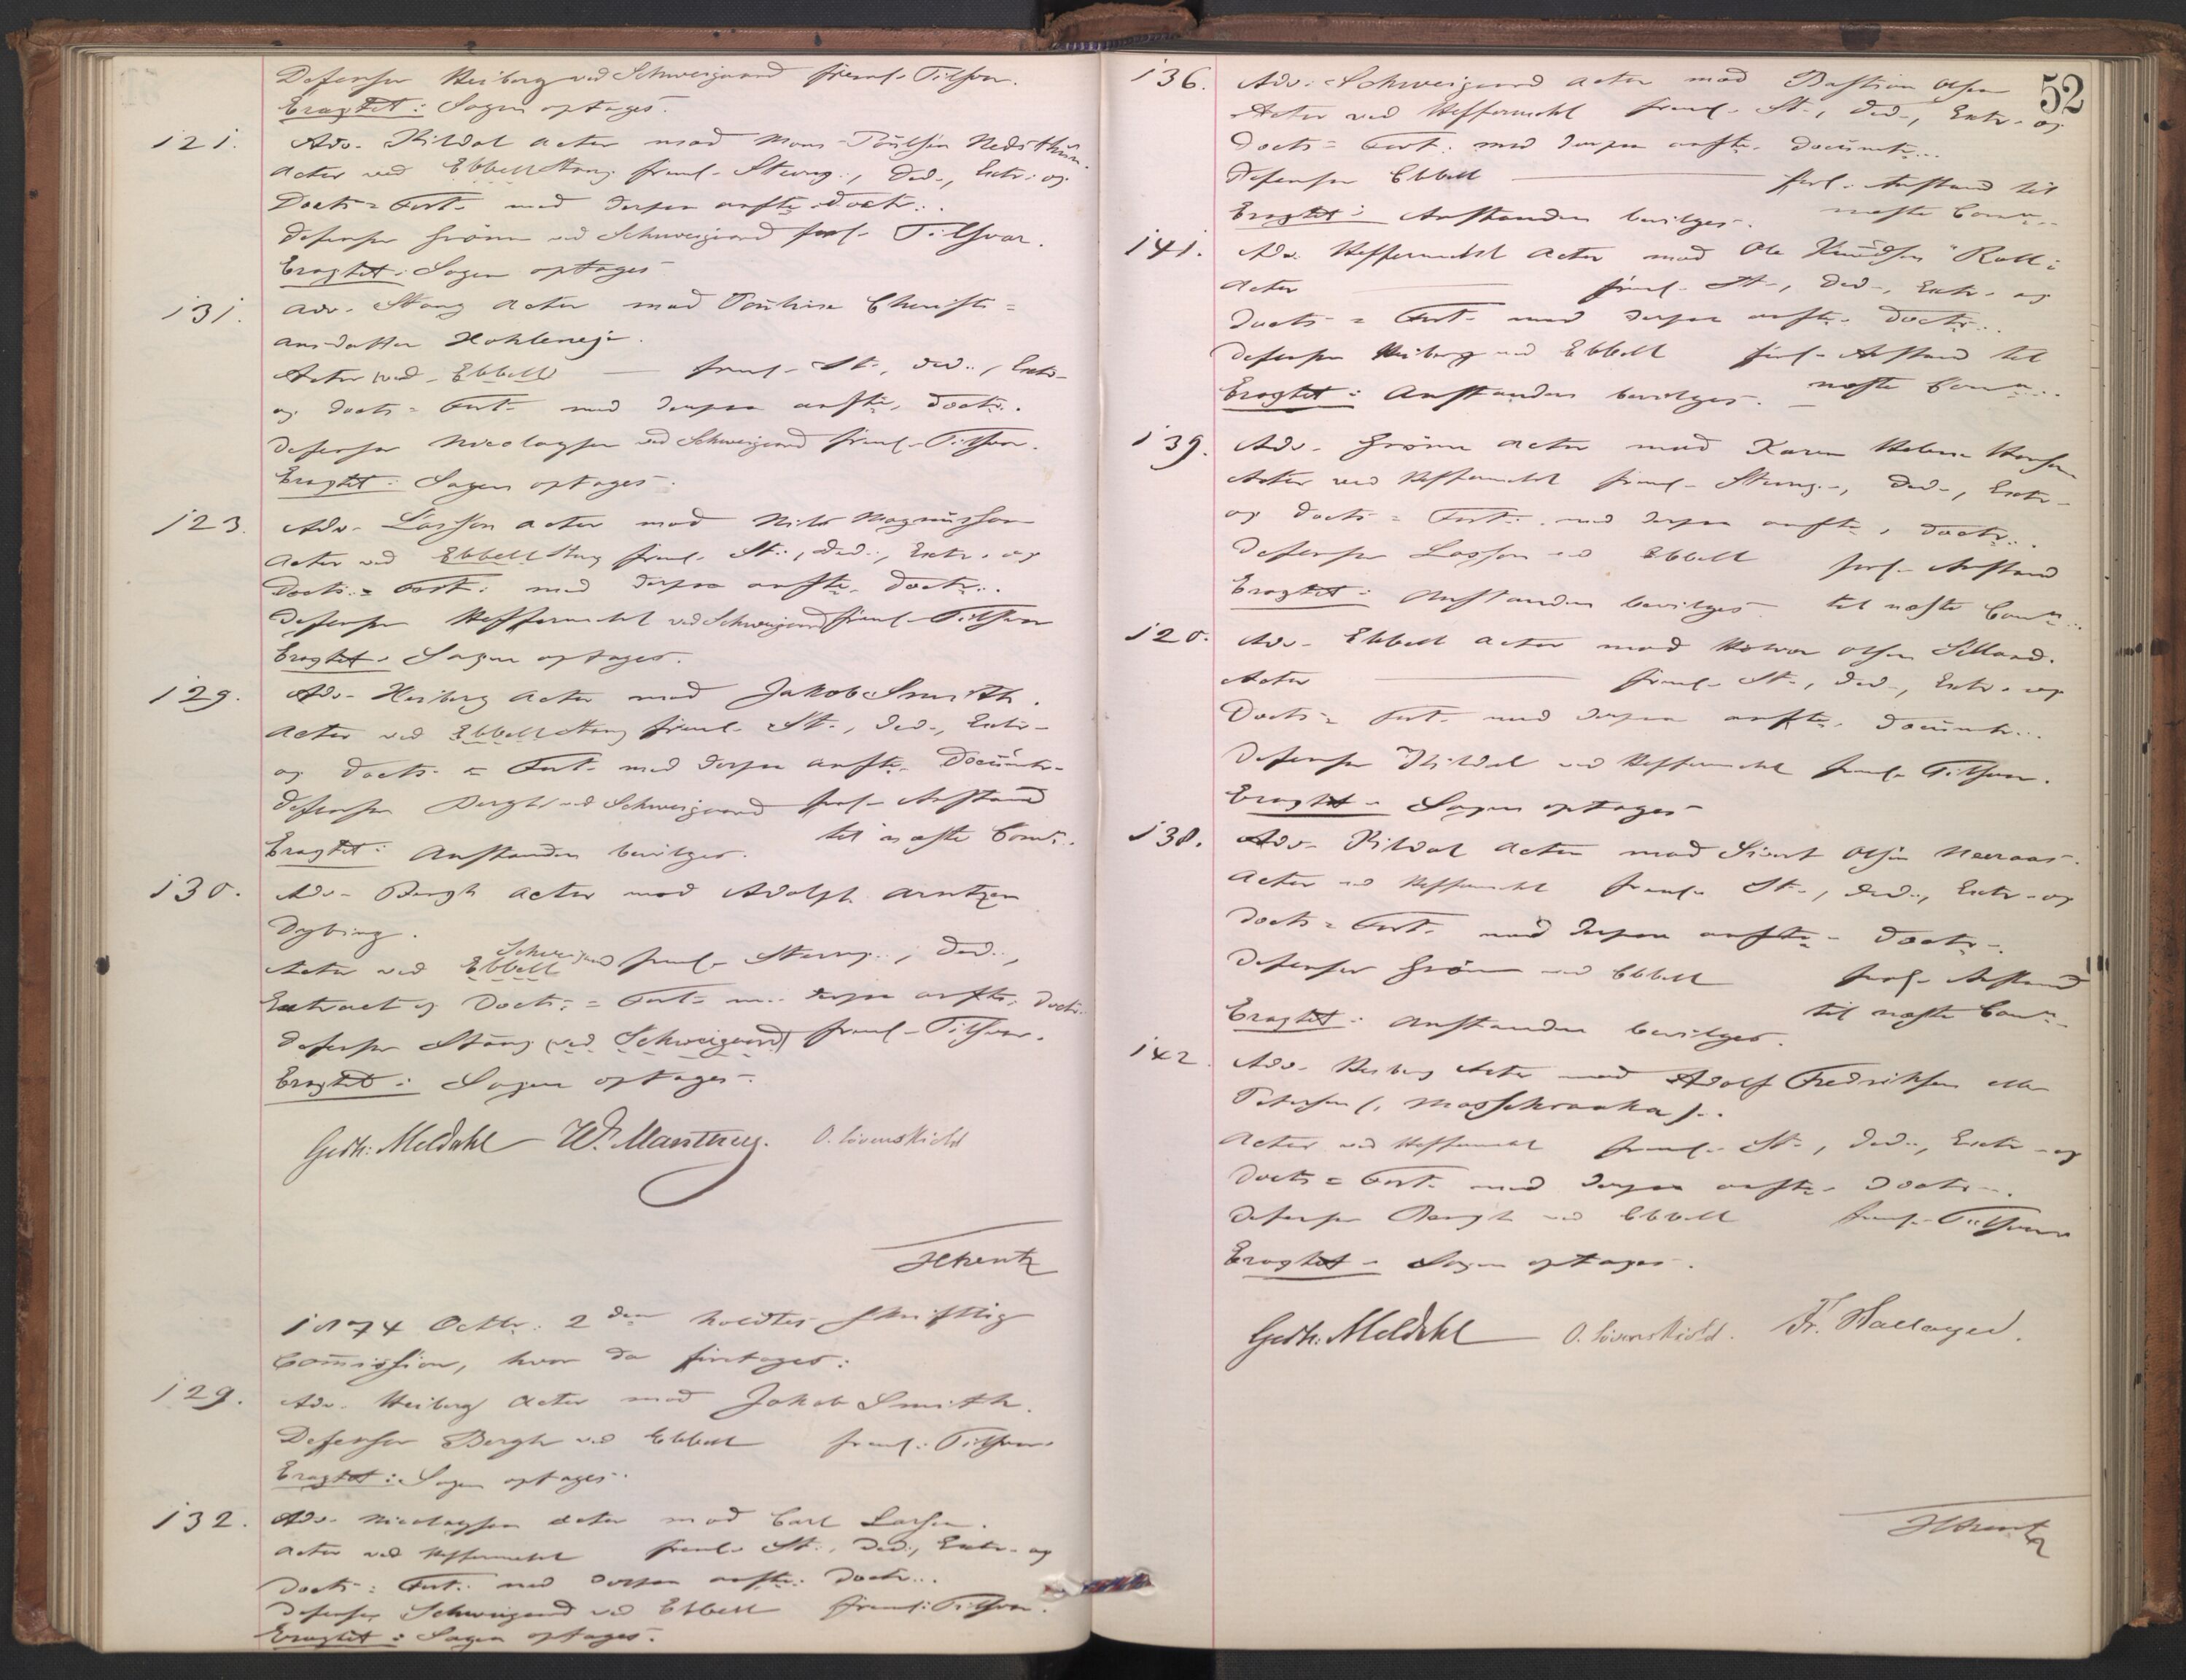 Defensor Heiberg ved Schweigaard freml. Tilsvar.
Eragtet: Sagen optages.
121. Adv. Kildal Actor mod Mons Poulsen Nedsthun.
Actor ved Ebbell Stang freml. Stevng., Ded., Extr. og
Docts = Fort. med derpaa anfte. Doctr.
Defensor Grönn ved Schweigaard freml. Tilsvar.
Eragtet: Sagen optages
131. Adv. Stang Actor mod Pauline Christi=
ansdatter Hohleneje.
Actor ved Ebbell — freml. St., Ded., Extr.
og Docts = Fort. med derpaa anfte. Doctr.
Defensor Nicolaysen ved Schweigaard freml. Tilsvar.
Eragtet: Sagen optages.
123. Adv. Lasson Actor mod Nils Magnusson
Actor ved Ebbell Stang freml. St., Ded., Extr. og
Docts = Fort. med derpaa anfte. Doctr.
Defensor Heffermehl ved Schweigaard freml. Tilsvar
Eragtet: Sagen optages.
129. Adv. Heiberg Actor mod Jakob Smith.
Actor ved Ebbell Stang freml. St., Ded., Extr.
og Docts = Fort. med derpaa anfte. Documtr.
Defensor Bergh ved Schweigaard forl. Anstand
til næste Comn.
Eragtet: Anstanden bevilges.
130. Adv. Bergh Actor mod Adolph Arntzen
Dybing.
Actor ved Ebbell Schweigaard freml. Stevng., Ded.,
Extract og Docts = Fort. m. derpaa anfte. Doctr.
Defensor Stang (ved Schweigaard) freml. Tilsvar.
Eragtet: Sagen optages.
Gedth: Meldahl W. Manthey. O. Løvenskiold
HChentz
1874 Octbr. 2den holdtes skriftlig
Commission, hvor da foretoges:
129. Adv. Heiberg Actor mod Jakob Smith.
Defensor Bergh ved Ebbell freml. Tilsvar
Eragtet: Sagen optages.
132. Adv. Nicolaysen Actor mod Carl Larsen.
Actor ved Heffermehl freml. St., Ded., Extr. og
Docts = Fort. med derpaa anfte. Doctr.
Defensor Schweigaard ved Ebbell freml. Tilsvar.
Eragtet: Sagen optages.
52
136. Adv. Schweigaard Actor mod Bastian Olsen
Actor ved Heffermehl freml. St., Ded., Extr. og
Docts = Fort. med derpaa anfte. Documtr.
Defensor Ebbell — forl. Anstand til
næste Comn.
Eragtet: Anstanden bevilges.
141. Adv. Heffermehl Actor mod Ole Knudsen Roll:
Actor — freml. St., Ded., Extr. og
Docts = Fort. med derpaa anfte. Doctr.
Defensor Heiberg ved Ebbell forl. Anstand til
næste Comn.
Eragtet: Anstanden bevilges.
139. Adv. Grönn Actor mod Karen Helene Hansen
Actor ved Heffermehl freml. Stevng., Ded., Extr.
og Docts = Fort. med derpaa anfte. Doctr.
Defensor Lasson ved Ebbell forl. Anstand
Eragtet: Anstanden bevilges til næste Comn.
120. Adv. Ebbell Actor mod Halvor Olsen Selland.
Actor — freml. St., Ded., Extr. og
Docts = Fort. med derpaa anfte. Documtr.
Defensor Kildal ved Heffermehl freml. Tilsvar.
Eragtet: Sagen optages
138. Adv. Kildal Actor mod Sivert Olsen Neeraas.
Actor ved Heffermehl freml. St., Ded., Extr. og
Docts = Fort. med derpaa anfte. Doctr.
Defensor Grönn ved Ebbell forl. Anstand
til næste Comn.
Eragtet: Anstanden bevilges.
142. Adv. Heiberg Actor mod Adolf Fredriksen eller
Petersen (Masschraaka).
Actor ved Heffermehl freml. St., Ded., Extr. og
Docts = Fort. med derpaa anfte. Doctr.
Defensor Bergh ved Ebbell freml. Tilsvar
Eragtet: Sagen optages.
Gedth: Meldahl O. Løvenskiold. Fr. Hallager.
HChentz